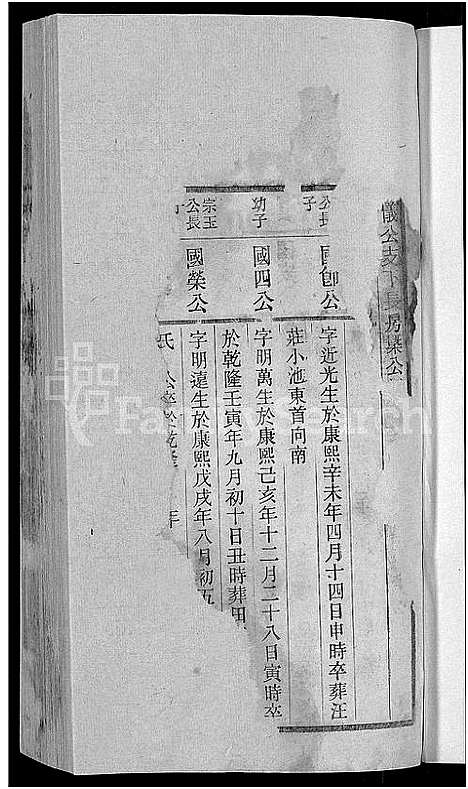 儀公支下長房榮公
公長子
國卿公
字近光生於康熙辛未年四月十四日申時卒葬汪
莊小池東首向南
幼子
國四公
字明萬生於康熙己亥年十二月二十八日寅時卒
於乾隆壬寅年九月初十日丑時葬田
宗玉公長子
國榮公
字明遠生於康熙戊戌年八月初五
氏 公卒於乾隆 年
FamilySearch